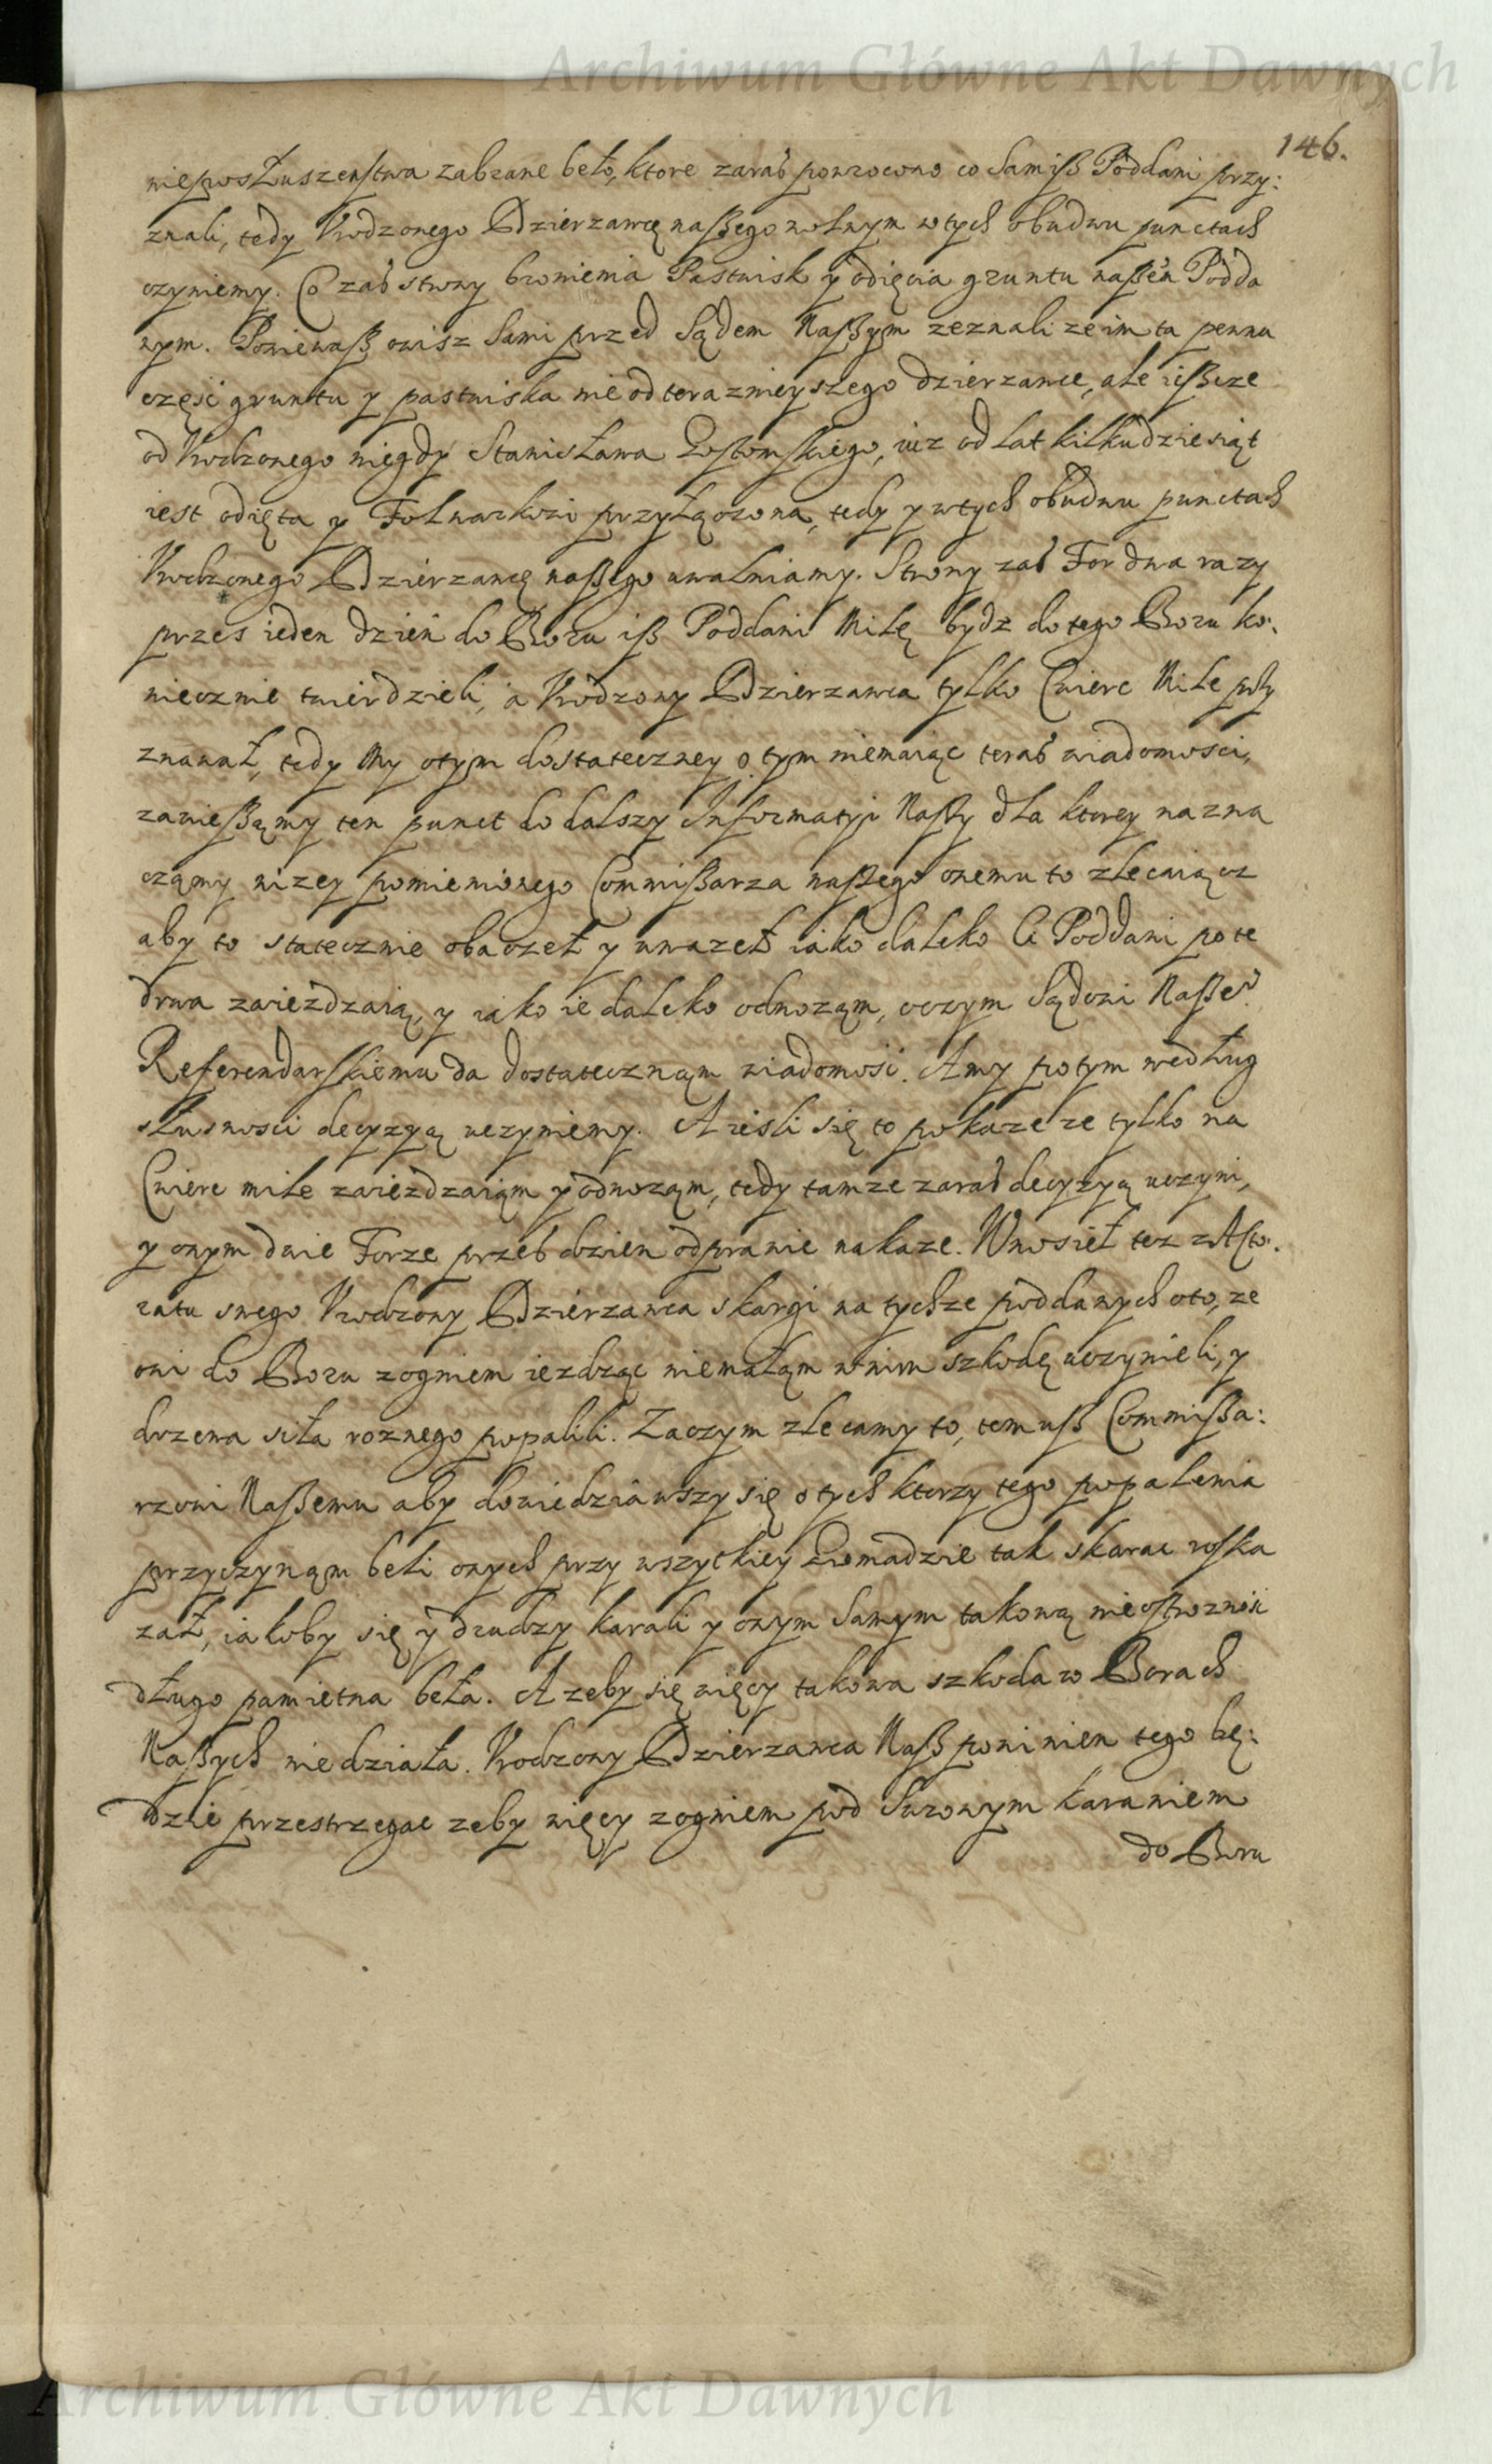 Archiwum Główne Akt Dawnych
146.
nieposłuszenstwa zabrane beło, ktore zaraś powrocono co Samiß Poddani przy:
znali, tedy Vrodzonego Dzierzawcę naßego wolnym wtych obudwu punctach
czyniemy. Co zaś strony bronienia Pastwisk y odięcia gruntu naßem Podda
nym. Poniewaß owisz Sami przed Sądem Naßym zeznali ze im ta pewna
częsć gruntu y pastwiska nie od terazniejszego dzierzawce, ale ießcze
od Vrodzonego niegdy Stanisława, iuz od lat kilkudziesiąt
iest odięta y Folwarkowi przyłączona, tedy y wtych obudwu punctach
Vrodzonego Dzierzawcę naßego uwalniamy. Strony zaś For dwa razy
przes ieden dzień do Boru iß Poddani Milę bydz do tego Boru ko:
niecznie twierdzieli, a Vrodzony Dzierzawca tylko Cwierc Mile przy
znawał, tedy My otym dostateczney o tym niemaiąc teraś wiadomosci,
zawießąmy ten punct do dalszy Informatyi Naßy dla ktorey nazna
cząmy nizey pomienionego Commißarza naßego onemu to zlecaiącz
aby to statecznie obaczeł y uwazeł iako daleko Ci Poddani po te
drwa zaieżdzaią, y iako ie daleko odwoząm, oczym Sądowi Naße?
Referendarskiemu da dostatecznąm wiadomosć. Amy potym według
słusnosci decyzyą uczyniemy. A iesli się to pokaze ze tylko na
Cwierc mile zaiezdzaiąm y odwoząm, tedy tamze zaraś decyzyą uczyni,
y onym dwie Forze prześ dzien odprawie nakaze. Wnosieł tez z Acto.
ratu swego Vrodzony Dzierzawca skargi na tychze poddanych oto, ze
oni do Boru zogniem iezdząc niemałąm wnim szkodę uczynieli, y
drzewa siła roznego popalili. Zaczym zlecamy to, temuß Commißa:
rzowi Naßemu aby dowiedziawszy się o tych ktorzy tego popalenia
przyczynąm beli onych przy wszytkiey Gromadzie tak skarac roska
zał, iakoby się y drudzy karali y onym Samym takową nieostroznosc
długo pamiętna beła. A zeby się więcy takowa szkoda w Borach
Naßych niedziała. Vrodzony Dzierzawca Naß powinien tego bę:
dzie przestrzegac zeby więcy zogniem pod Surowym karaniem
do Boru
Archiwum Główne Akt Dawnych